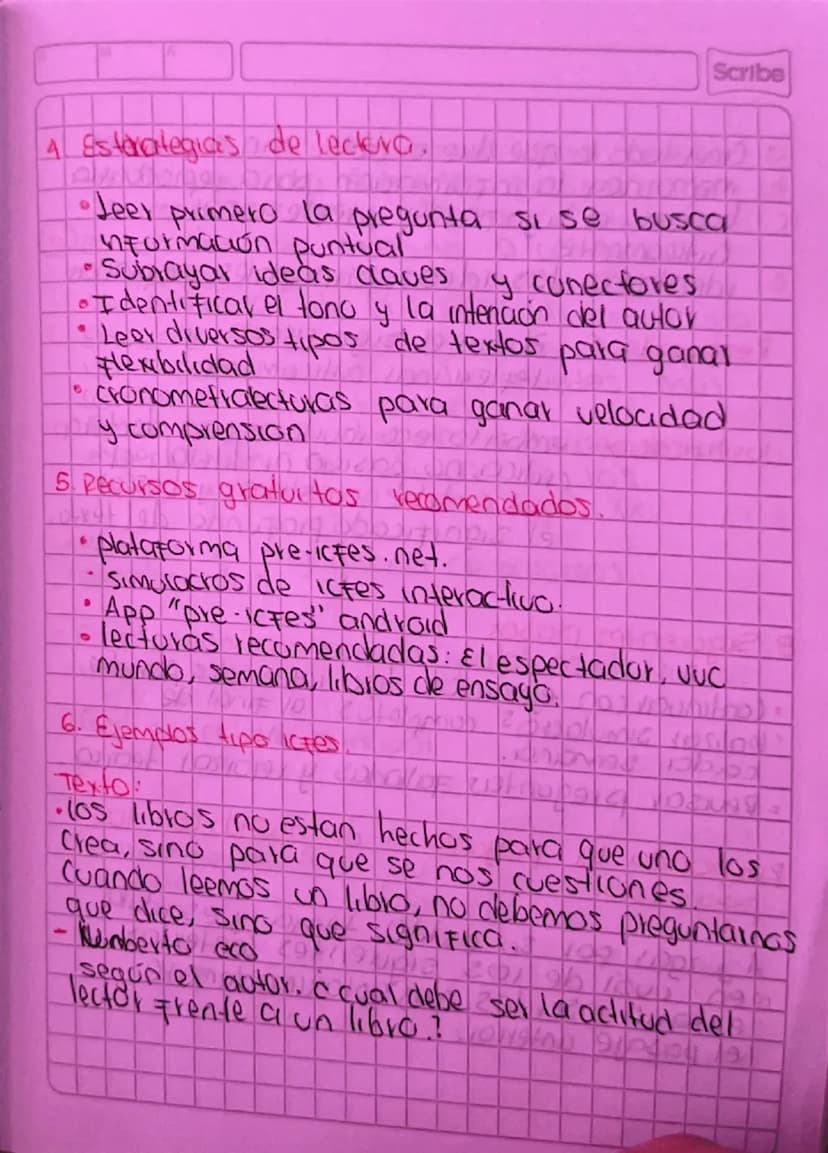 Scribe
4 Estrategias de lectura.
• Leer primero la pregunta si se busca
información puntual
• Subrayar ideas claves y conectores
• Identificar el tono y la intención del autor
• Leer diversos tipos de textos para ganar
flexibilidad
• cronometralecturas para ganar velocidad
y comprension
5. Recursos gratuitos recomendados.
• plataforma pre-icfes.net.
• simulacros de icfes interactivo.
• App "pre-icfes" android
• lecturas recomendadas: El espectador, vuc
mundo, semana, libros de ensayo.
6. Ejemplos tipo icfes.
Texto:
• los libros no estan hechos para que uno los
crea, sino para que se nos cuestiones.
Cuando leemos un libro, no debemos preguntarnos
que dice, sino que significa.
- Humberto eco
según el autor. ¿ cual debe ser la actitud del
lector frente a un libro.?